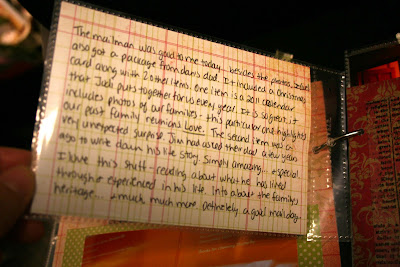 The mailman was good to me today... besides the photos, Jessie
also got a package from dan's dad. It included a Christmas
card along with 2 other items. One item is a 2011 calendar
that Judi puts together for us every year. It is so great. it
includes photos of our families - this particular one highlights
our past family reunions. Love. The second item was a
very unexpected surprise. Jim had asked their dad a few years
ago to write down his life story. Simply amazing... + special.
I love this stuff... reading about what he has lived
through + experienced in his life. Info about the family's
heritage... + much, much more. Definitely a good mail day.